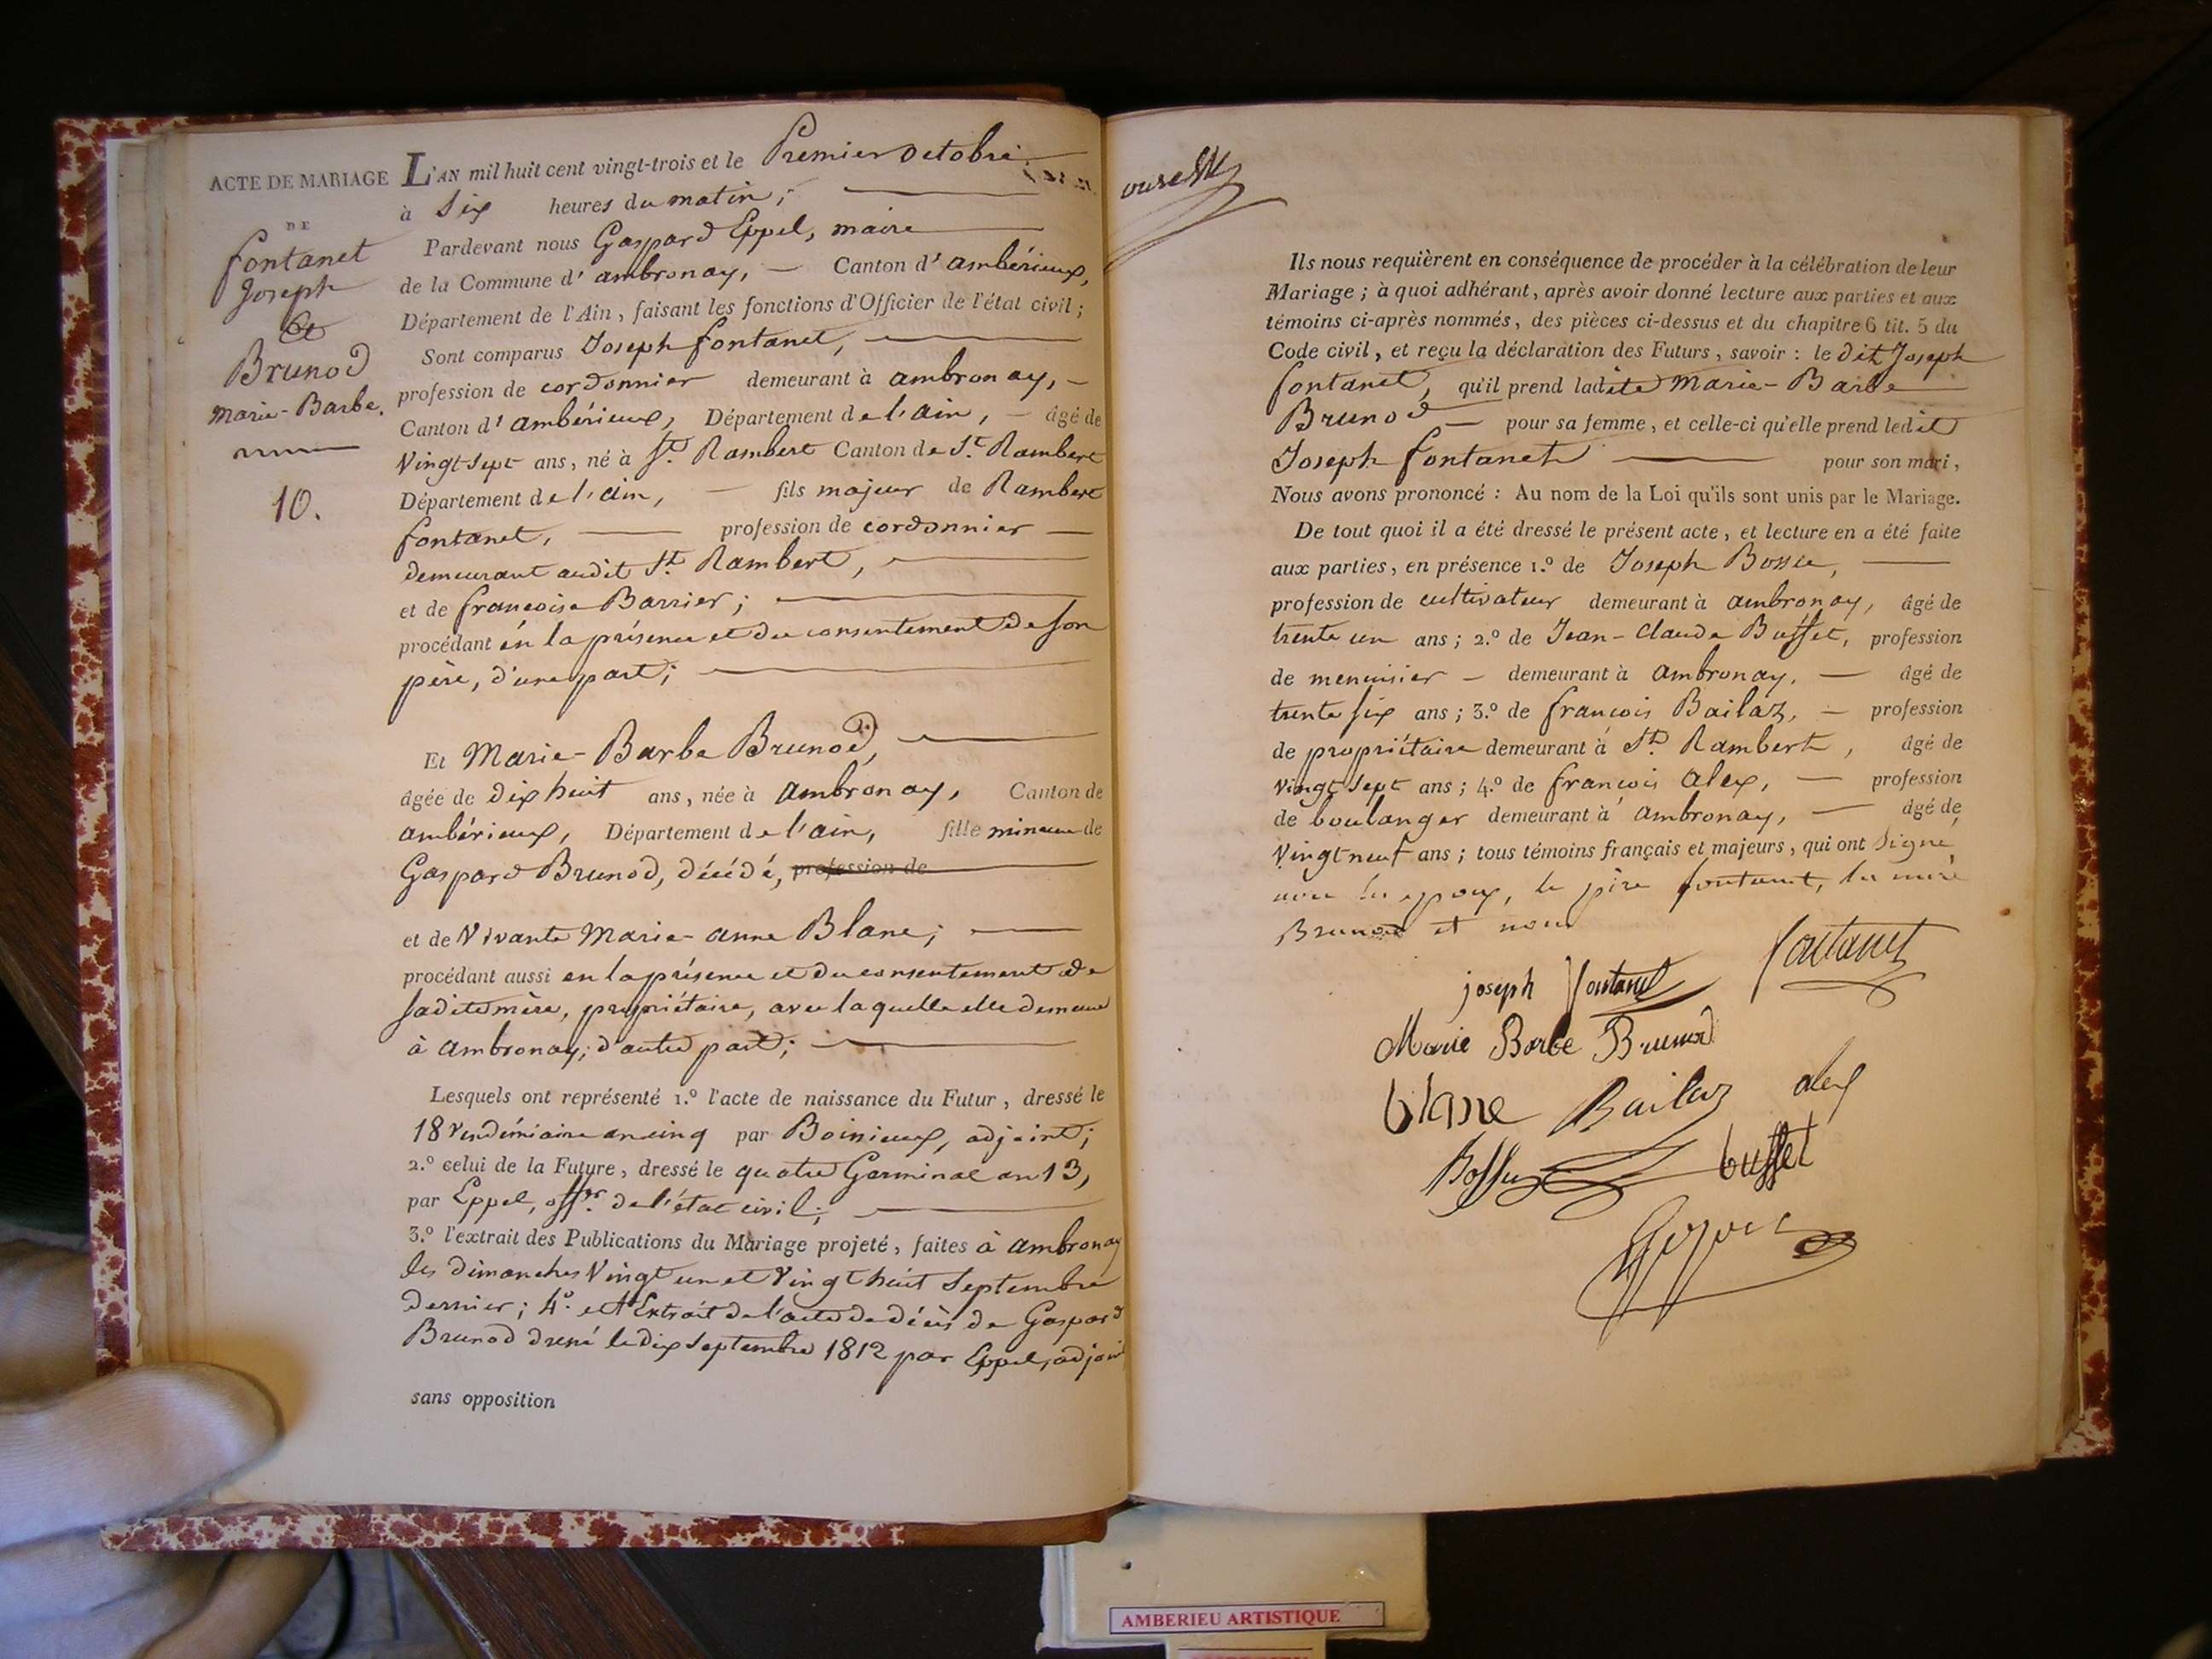 ACTE DE MARIAGE
DE
fontanet
Joseph
Et
Brunod
Marie-Barbe.
10.
L'AN mil huit cent vingt-trois et le Premier octobre
à Six heures du matin;
Pardevant nous Gaspard Eppel, maire
de la Commune d'ambronay, — Canton d'ambérieux,
Département de l'Ain, faisant les fonctions d'Officier de l'état civil;
Sont comparus Joseph fontanet,
profession de cordonnier demeurant à ambronay, —
Canton d'ambérieux, Département de l'ain, — âgé de
Vingt sept ans, né à St. Rambert Canton de St. Rambert
Département de l'ain, — fils majeur de Rambert
fontanet, — profession de cordonnier —
demeurant audit St. Rambert,
et de francoise Barrier;
procédant en la présence et du consentement de son
père, d'une part;
Et Marie-Barbe Brunod,
âgée de dix huit ans, née à ambronay, Canton de
ambérieux, Département de l'ain, fille mineure de
Gaspard Brunod, décédé, profession de
et de Vivante Marie-anne Blanc;
procédant aussi en la présence et du consentement de
sadite mère, propriétaire, avec laquelle elle demeure
à ambronay; d'autre part;
Lesquels ont représenté 1.º l'acte de naissance du Futur, dressé le
18 Vendémiaire an cinq par Boinieux, adjoint;
2.º celui de la Future, dressé le quatre Germinal an 13,
par Eppel, offer. de l'état civil;
3.º l'extrait des Publications du Mariage projeté, faites à ambronay
les dimanches Vingt un et Vingt huit Septembre
dernier; 4º. et Extrait de l'acte de décès de Gaspard
Brunod dressé le dix Septembre 1812 par Eppel, adjoint
sans opposition
Ils nous requièrent en conséquence de procéder à la célébration de leur
Mariage; à quoi adhérant, après avoir donné lecture aux parties et aux
témoins ci-après nommés, des pièces ci-dessus et du chapitre 6 tit. 5 du
Code civil, et reçu la déclaration des Futurs, savoir : le dit Joseph
fontanet, qu'il prend ladite Marie-Barbe
Brunod — pour sa femme, et celle-ci qu'elle prend ledit
Joseph fontanet — pour son mari,
Nous avons prononcé : Au nom de la Loi qu'ils sont unis par le Mariage.
De tout quoi il a été dressé le présent acte, et lecture en a été faite
aux parties, en présence 1.º de Joseph Bossu,
profession de cultivateur demeurant à ambronay, âgé de
trente un ans; 2.º de Jean-Claude Buffet, profession
de menuisier — demeurant à ambronay, — âgé de
trente six ans; 3.º de francois Bailaz, — profession
de propriétaire demeurant à St. Rambert, âgé de
Vingt sept ans; 4.º de francois alex, — profession
de boulanger demeurant à ambronay, — âgé de
Vingt neuf ans; tous témoins français et majeurs, qui ont Signé
avec les epoux, le père fontanet, la mere
Brunod et nous
joseph fontanet fontanet
Marie Barbe Brunod
blanc Bailaz alex
Bossu buffet
AMBERIEU ARTISTIQUE